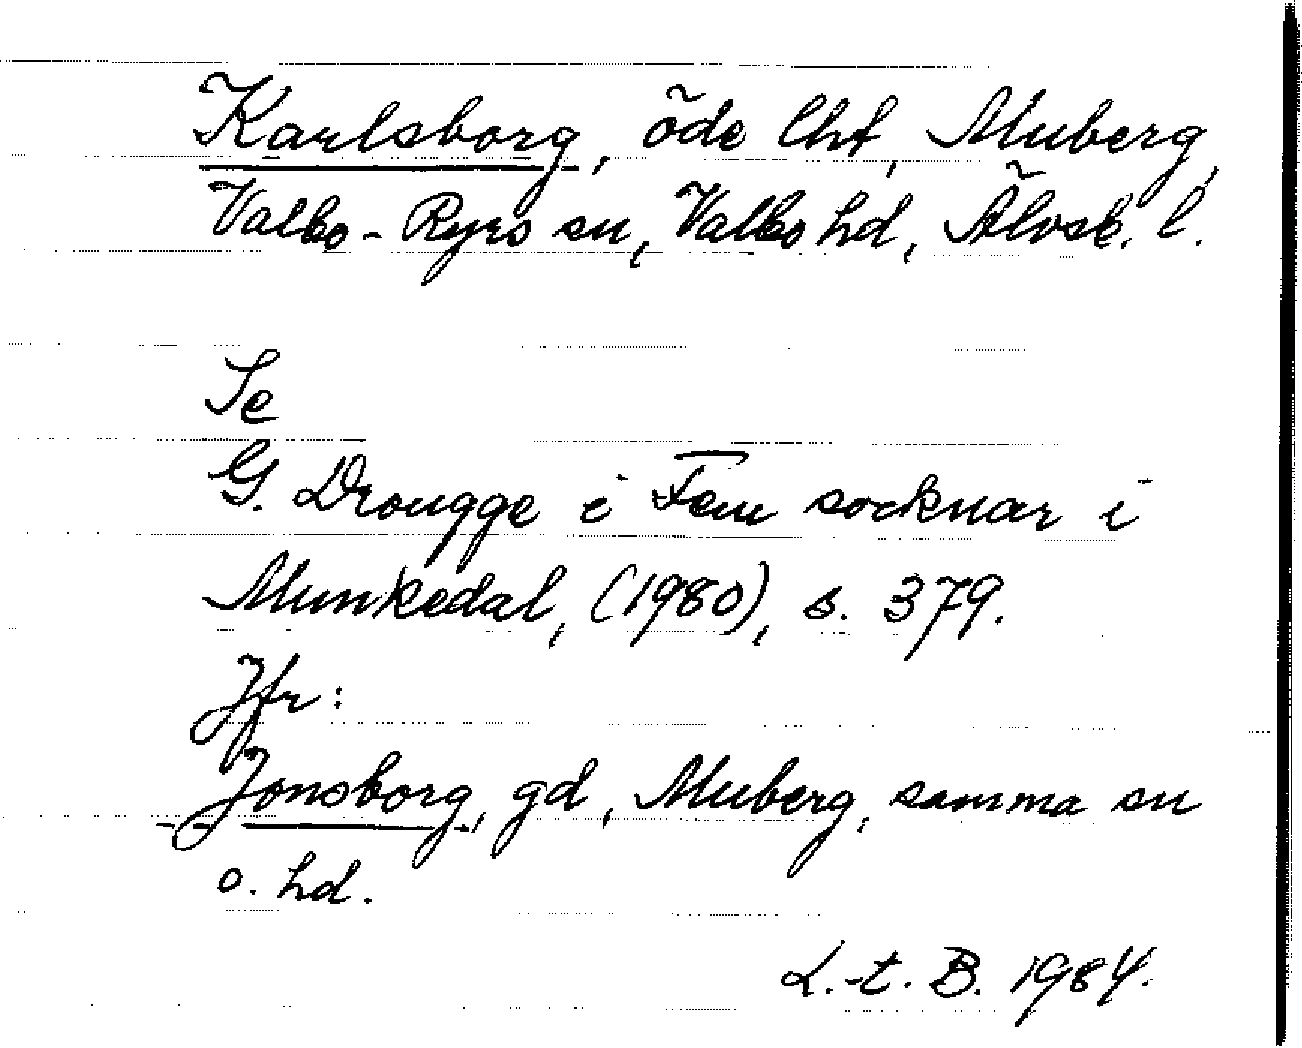 Karlsborg, öde lht, Muberg,
Valbo-Ryrs sn, Valbo hd, Älvsb. l.
Se
G. Drougge i Fem socknar i
Munkedal, (1980), s. 379.
Jfr:
Jonsborg, gd, Muberg, samma sn
o. hd.
L.-t. B. 1984.